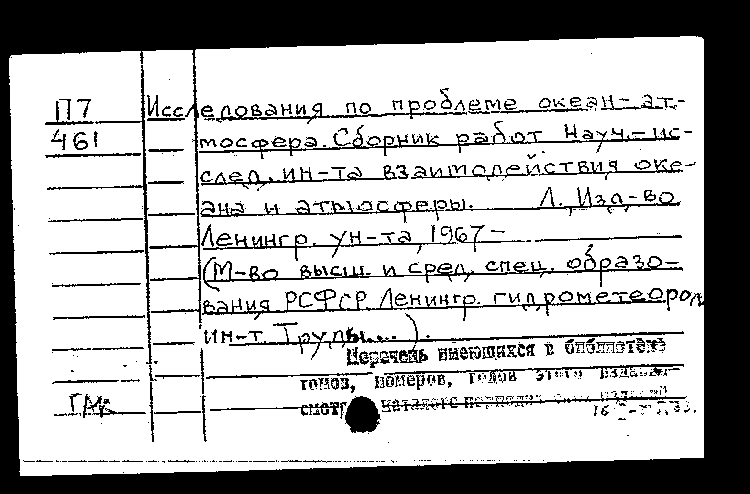 П7 Исследования по проблеме океан-ат-
461 мосфера. Сборник работ Науч.-ис-
след. ин-та взаимодействия оке-
ана и атмосферы. Л., Изд-во
Ленингр. ун-та, 1967-
(М-во высш. и сред. спец. образо-
вания РСФСР. Ленингр. гидрометеорол.
ин-т. Труды...).
Перечень имеющихся в библиотеке
томов, номеров, годов этого издания
смотр каталоге